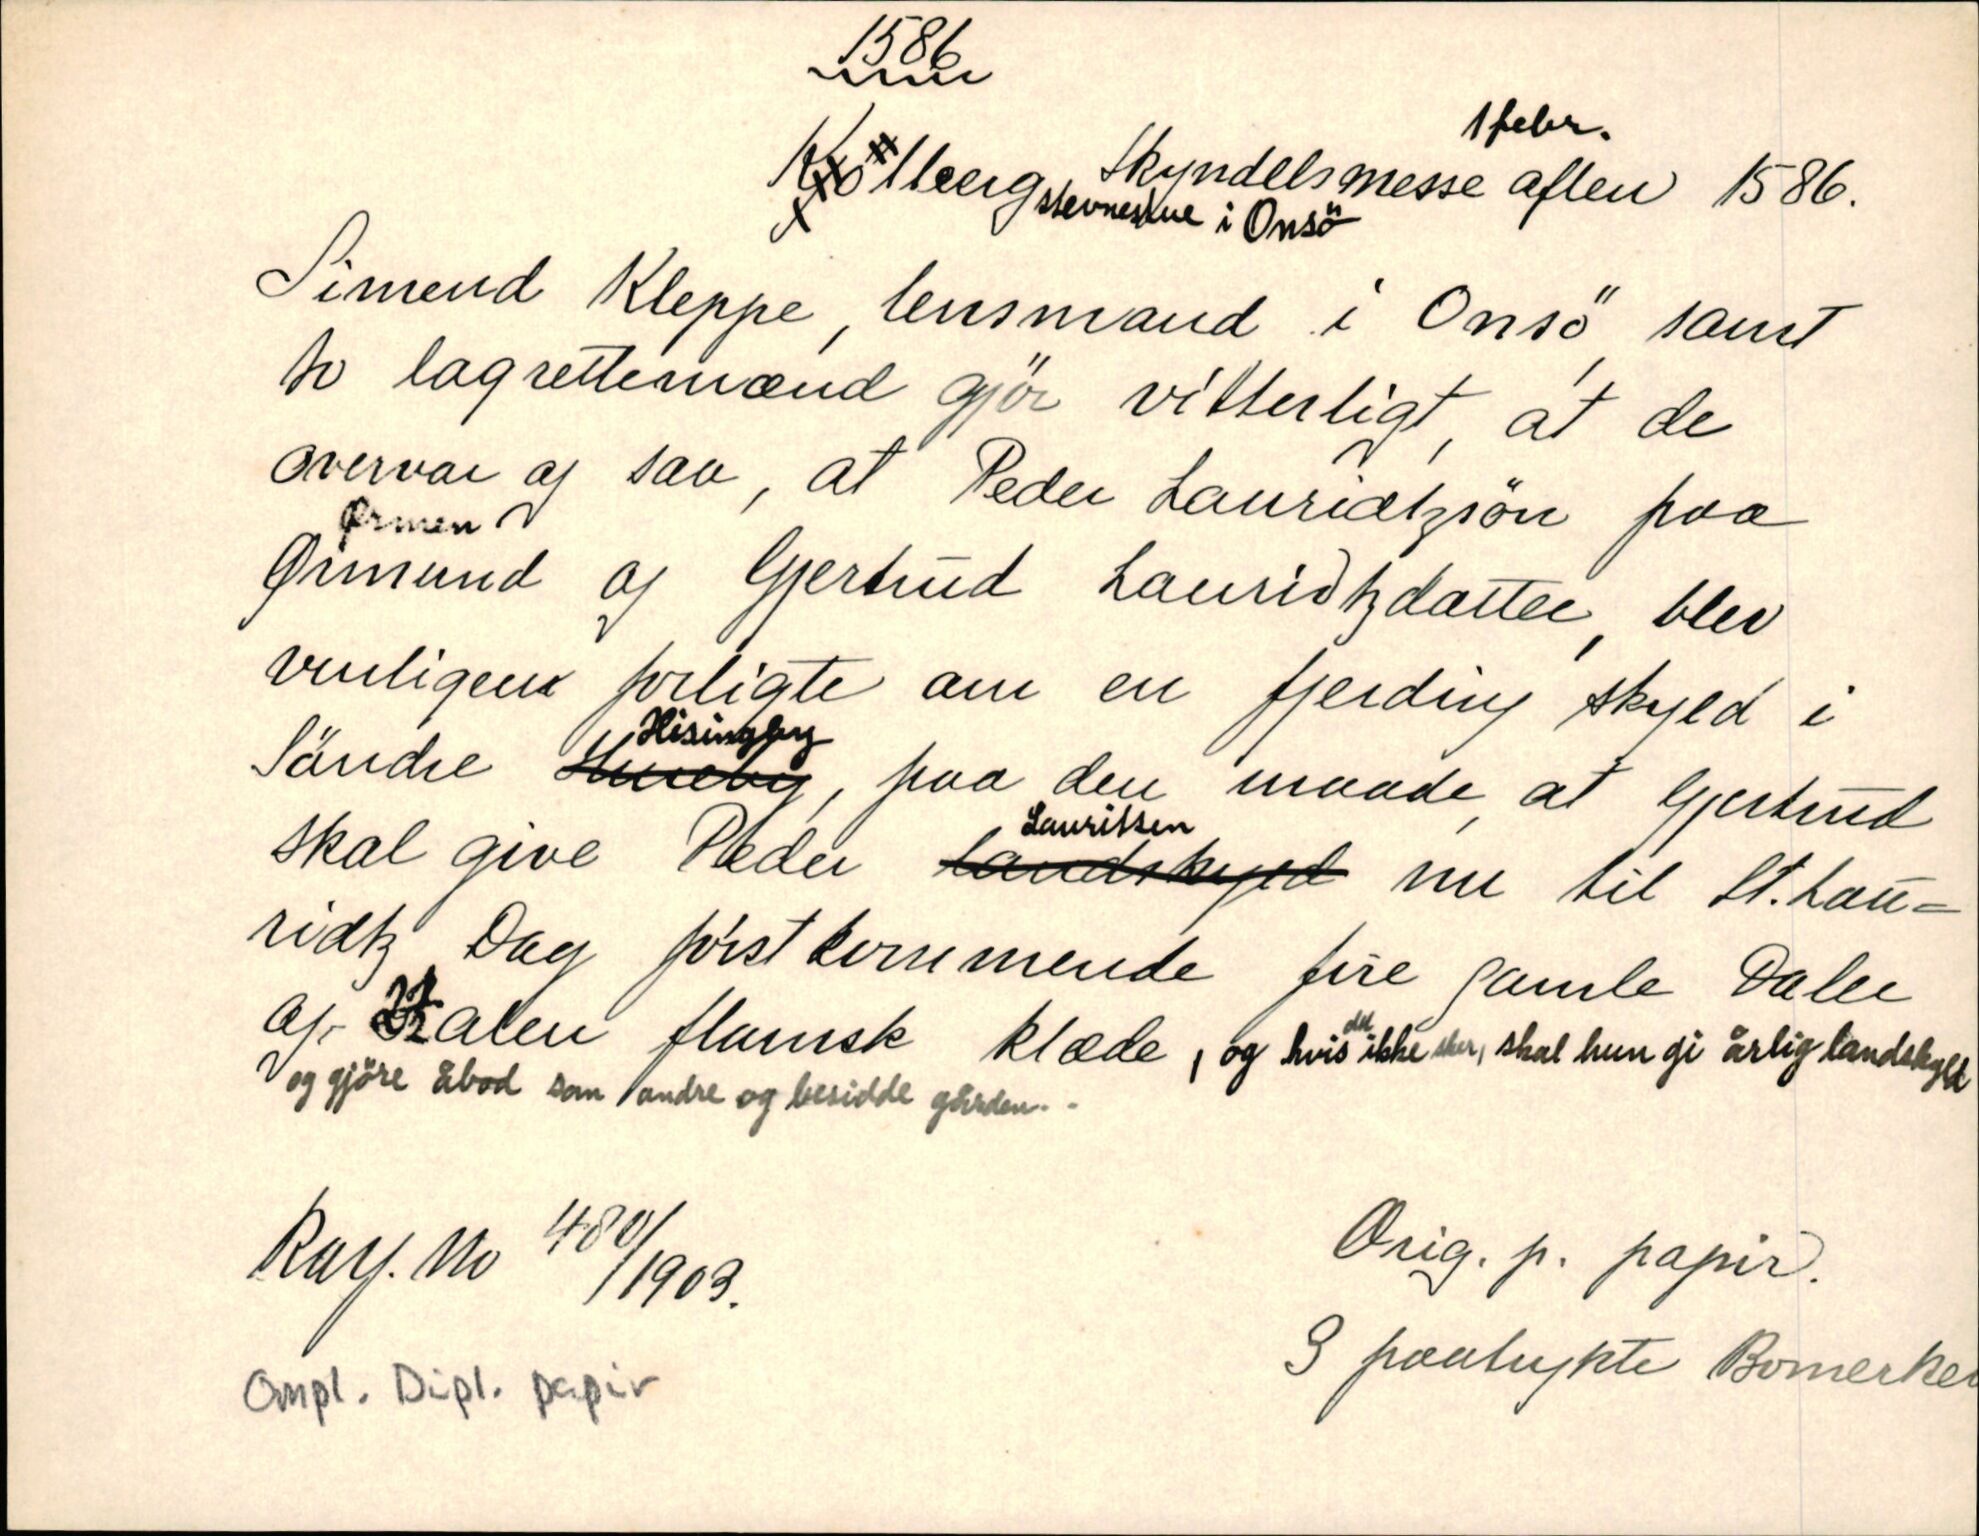 1586
1 febr.
Kjölberg, Skyndelsmesse aften 1586.
stevnestue i Onsö
Simend Kleppe, lensmand i Onsö, samt
to lagrettemænd gjör vitterligt, at de
overvar og saa, at Peder Lauridtzsön paa
Ørmen
Ørmund og Gjertrud Lauridtzdatter, blev
venligen forligte om en fjerding skyld i
Hisingby
Söndre Huneby, paa den maade, at Gjertrud
Lauritsen
skal give Peder Landskyld nu til St. Lau=
ridtz Dag först kommende fire gamle Daler
og alen flamsk klæde, og hvis det ikke sker, skal hun gi årlig landskyld
og gjöre åbod som andre og besidde gården.
Ray. No 480/1903.
Orig. p. papir.
3 paatrykte Bomerker
Ompl. Dipl. papir